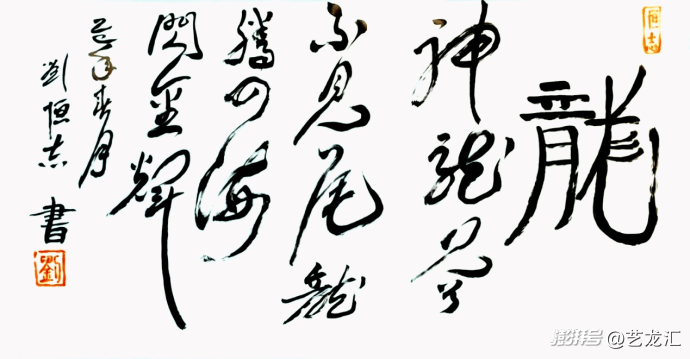 龍
神龍見首
不見尾龍
騰四海
閃金輝
年春月
劉恒志書
劉
恒志
澎湃号 @艺龙汇